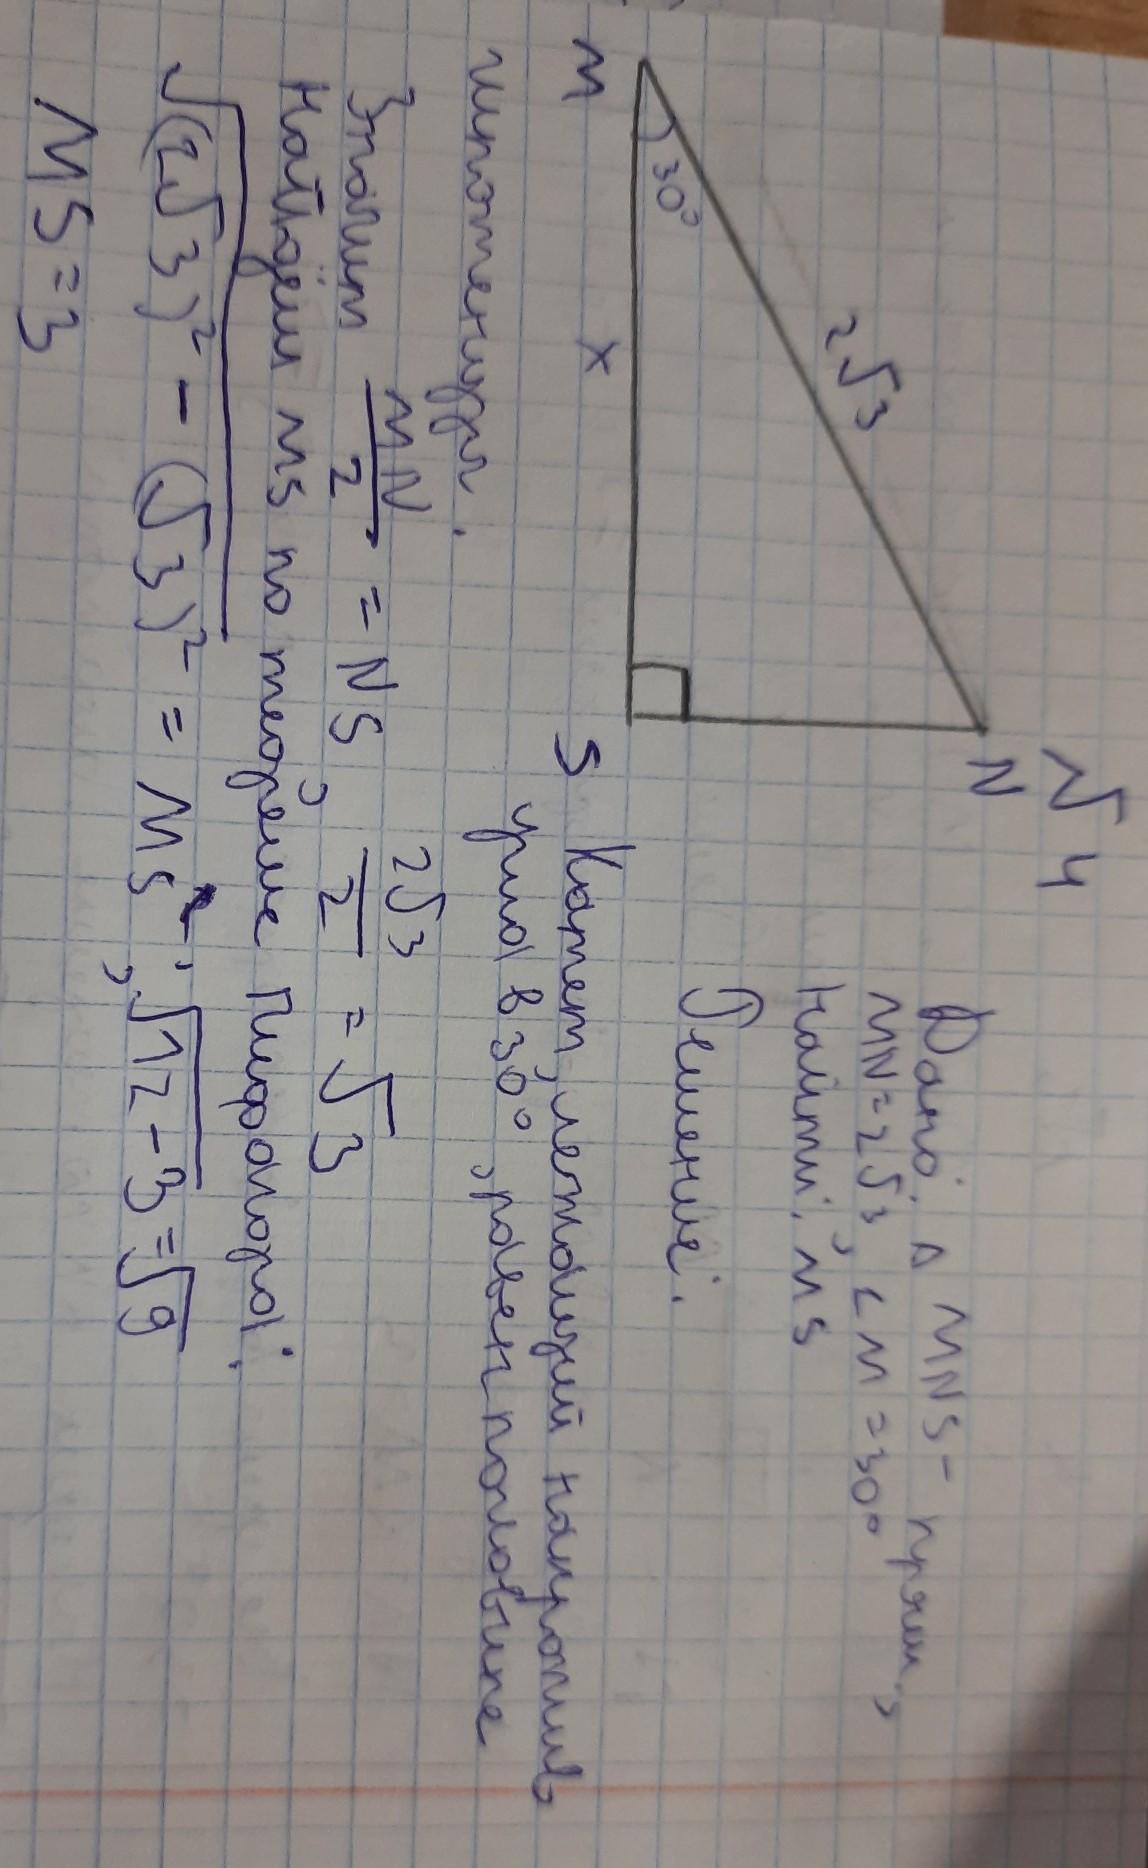 √4
N
Дано: △ MNS - прям,
MN=2√3, ∠M=30°
Найти: MS
2√3
30°
M
x
S
Решение:
Катет, лежащий напротив
угла в 30°, равен половине
гипотенузы.
Значит MN/2 = NS, 2√3/2 = √3
Найдём MS по теореме Пифагора:
√((2√3)² - (√3)²) = MS, √(12-3)=√9
MS=3